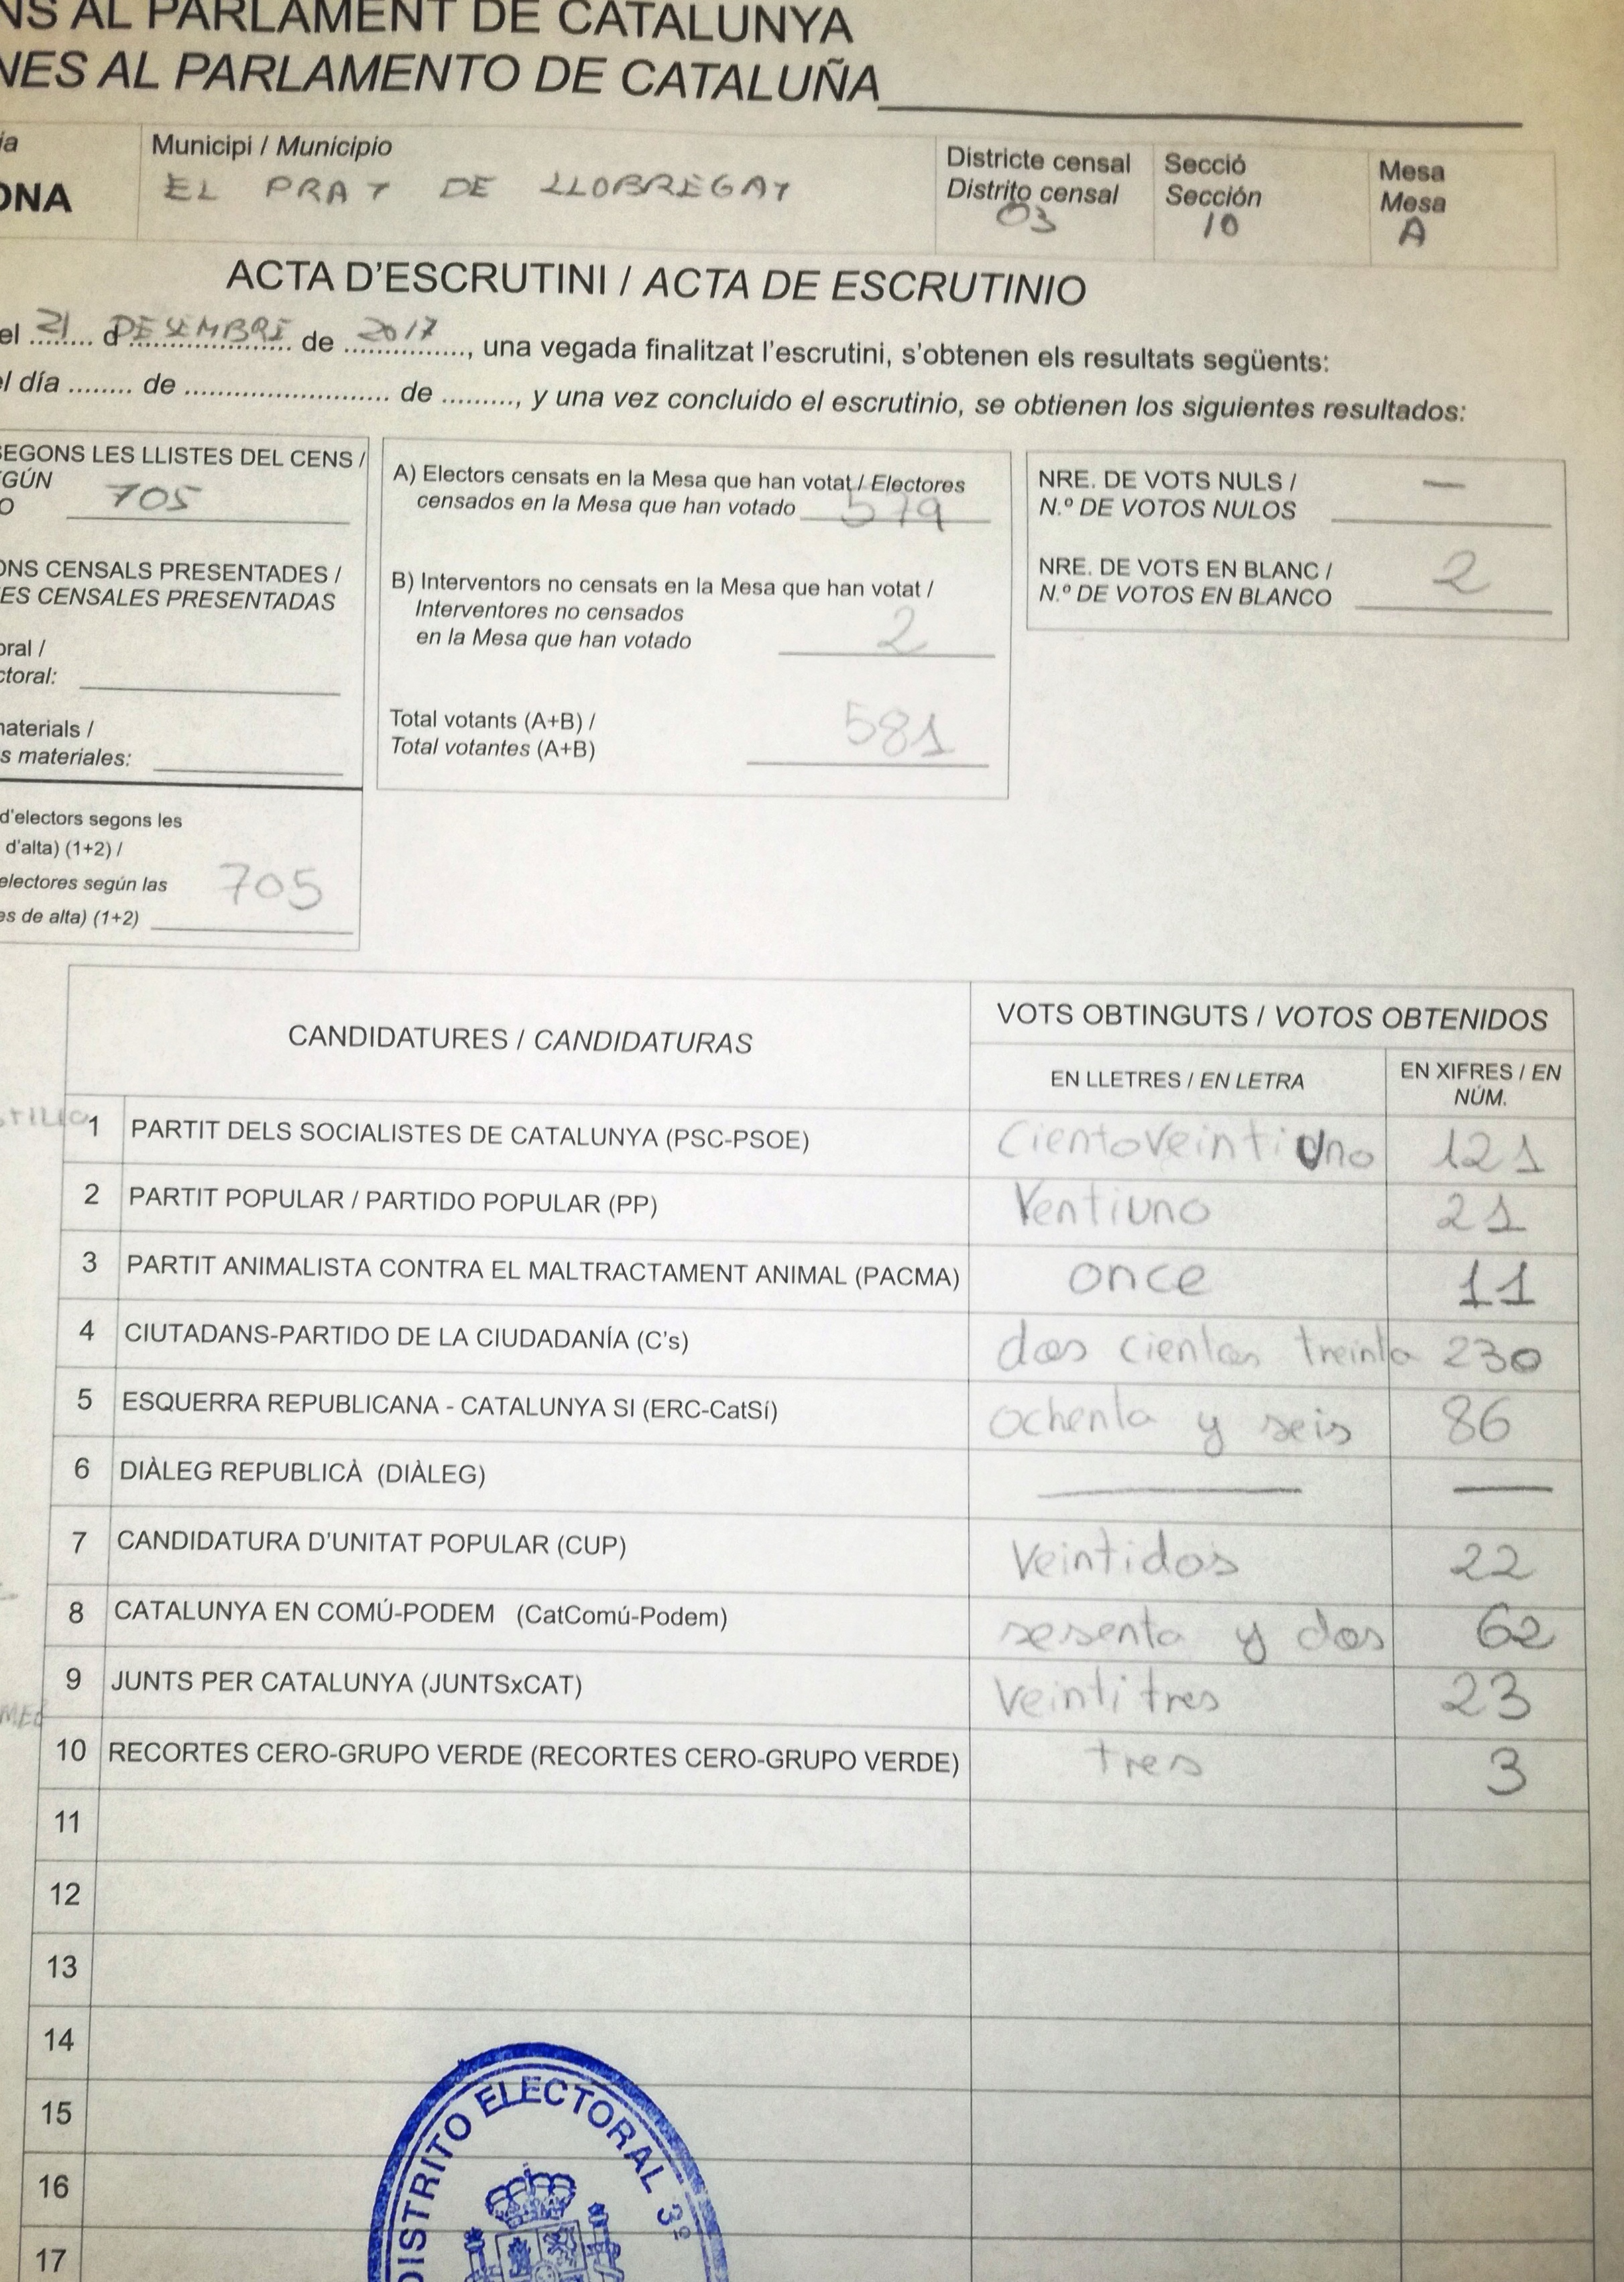 NS AL PARLAMENT DE CATALUNYA
NES AL PARLAMENTO DE CATALUÑA
ia
ONA
Municipi / Municipio
EL PRAT DE LLOBREGAT
Districte censal
Distrito censal
03
Secció
Sección
10
Mesa
Mesa
A
ACTA D'ESCRUTINI / ACTA DE ESCRUTINIO
el 21 d DESEMBRE de 2017, una vegada finalitzat l'escrutini, s'obtenen els resultats següents:
el día ........ de ........................... de ........., y una vez concluido el escrutinio, se obtienen los siguientes resultados:
SEGONS LES LLISTES DEL CENS /
GÚN
O 705
ONS CENSALS PRESENTADES /
ES CENSALES PRESENTADAS
oral /
ctoral:
materials /
s materiales:
d'electors segons les
d'alta) (1+2) /
electores según las
es de alta) (1+2) 705
A) Electors censats en la Mesa que han votat / Electores
censados en la Mesa que han votado 579
B) Interventors no censats en la Mesa que han votat /
Interventores no censados
en la Mesa que han votado 2
Total votants (A+B) /
Total votantes (A+B) 581
NRE. DE VOTS NULS /
N.º DE VOTOS NULOS —
NRE. DE VOTS EN BLANC /
N.º DE VOTOS EN BLANCO 2
CANDIDATURES / CANDIDATURAS
VOTS OBTINGUTS / VOTOS OBTENIDOS
EN LLETRES / EN LETRA
EN XIFRES / EN
NÚM.
1 PARTIT DELS SOCIALISTES DE CATALUNYA (PSC-PSOE) Cientoveintiuno 121
2 PARTIT POPULAR / PARTIDO POPULAR (PP) Ventiuno 21
3 PARTIT ANIMALISTA CONTRA EL MALTRACTAMENT ANIMAL (PACMA) once 11
4 CIUTADANS-PARTIDO DE LA CIUDADANÍA (C's) dos cientos treinta 230
5 ESQUERRA REPUBLICANA - CATALUNYA SI (ERC-CatSí) ochenta y seis 86
6 DIÀLEG REPUBLICÀ (DIÀLEG) — —
7 CANDIDATURA D'UNITAT POPULAR (CUP) Veintidos 22
8 CATALUNYA EN COMÚ-PODEM (CatComú-Podem) sesenta y dos 62
9 JUNTS PER CATALUNYA (JUNTSxCAT) Veintitres 23
10 RECORTES CERO-GRUPO VERDE (RECORTES CERO-GRUPO VERDE) tres 3
11
12
13
14
15
16
17
DISTRITO ELECTORAL 3º